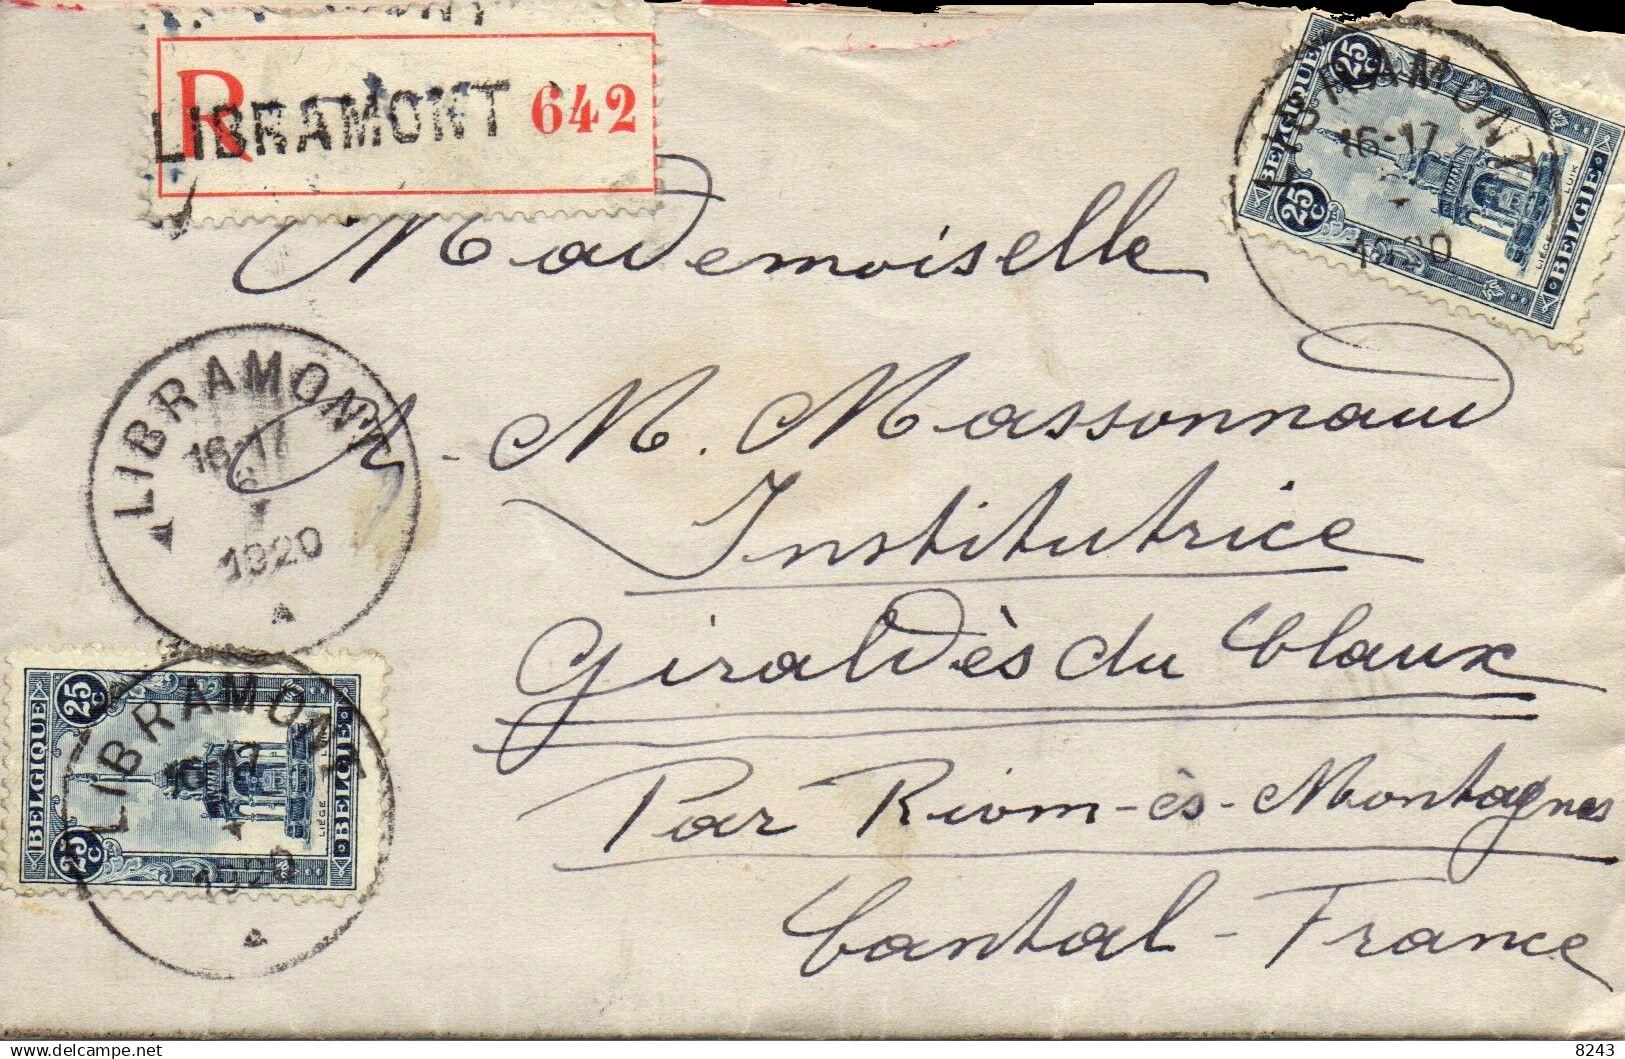 R LIBRAMONT 642
LIBRAMONT
16-17
1920
25c BELGIQUE 25c
LIÉGE-LUIK
BELGIË
Mademoiselle
LIBRAMONT
16-17
1920
M. Massonnaud
Institutrice
Giraldès du Claux
Par Riom-ès-Montagnes
Cantal - France
LIBRAMONT
16-17
1920
25c BELGIQUE 25c
LIÉGE-LUIK
BELGIË
Delcampe.net
8243